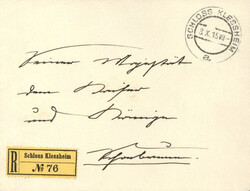 SCHLOSS KLESSHEIM
X. 15
a
Seiner Majestät
dem Kaiser
und Könige
Schönbrunn
R Schloss Klessheim
№ 76